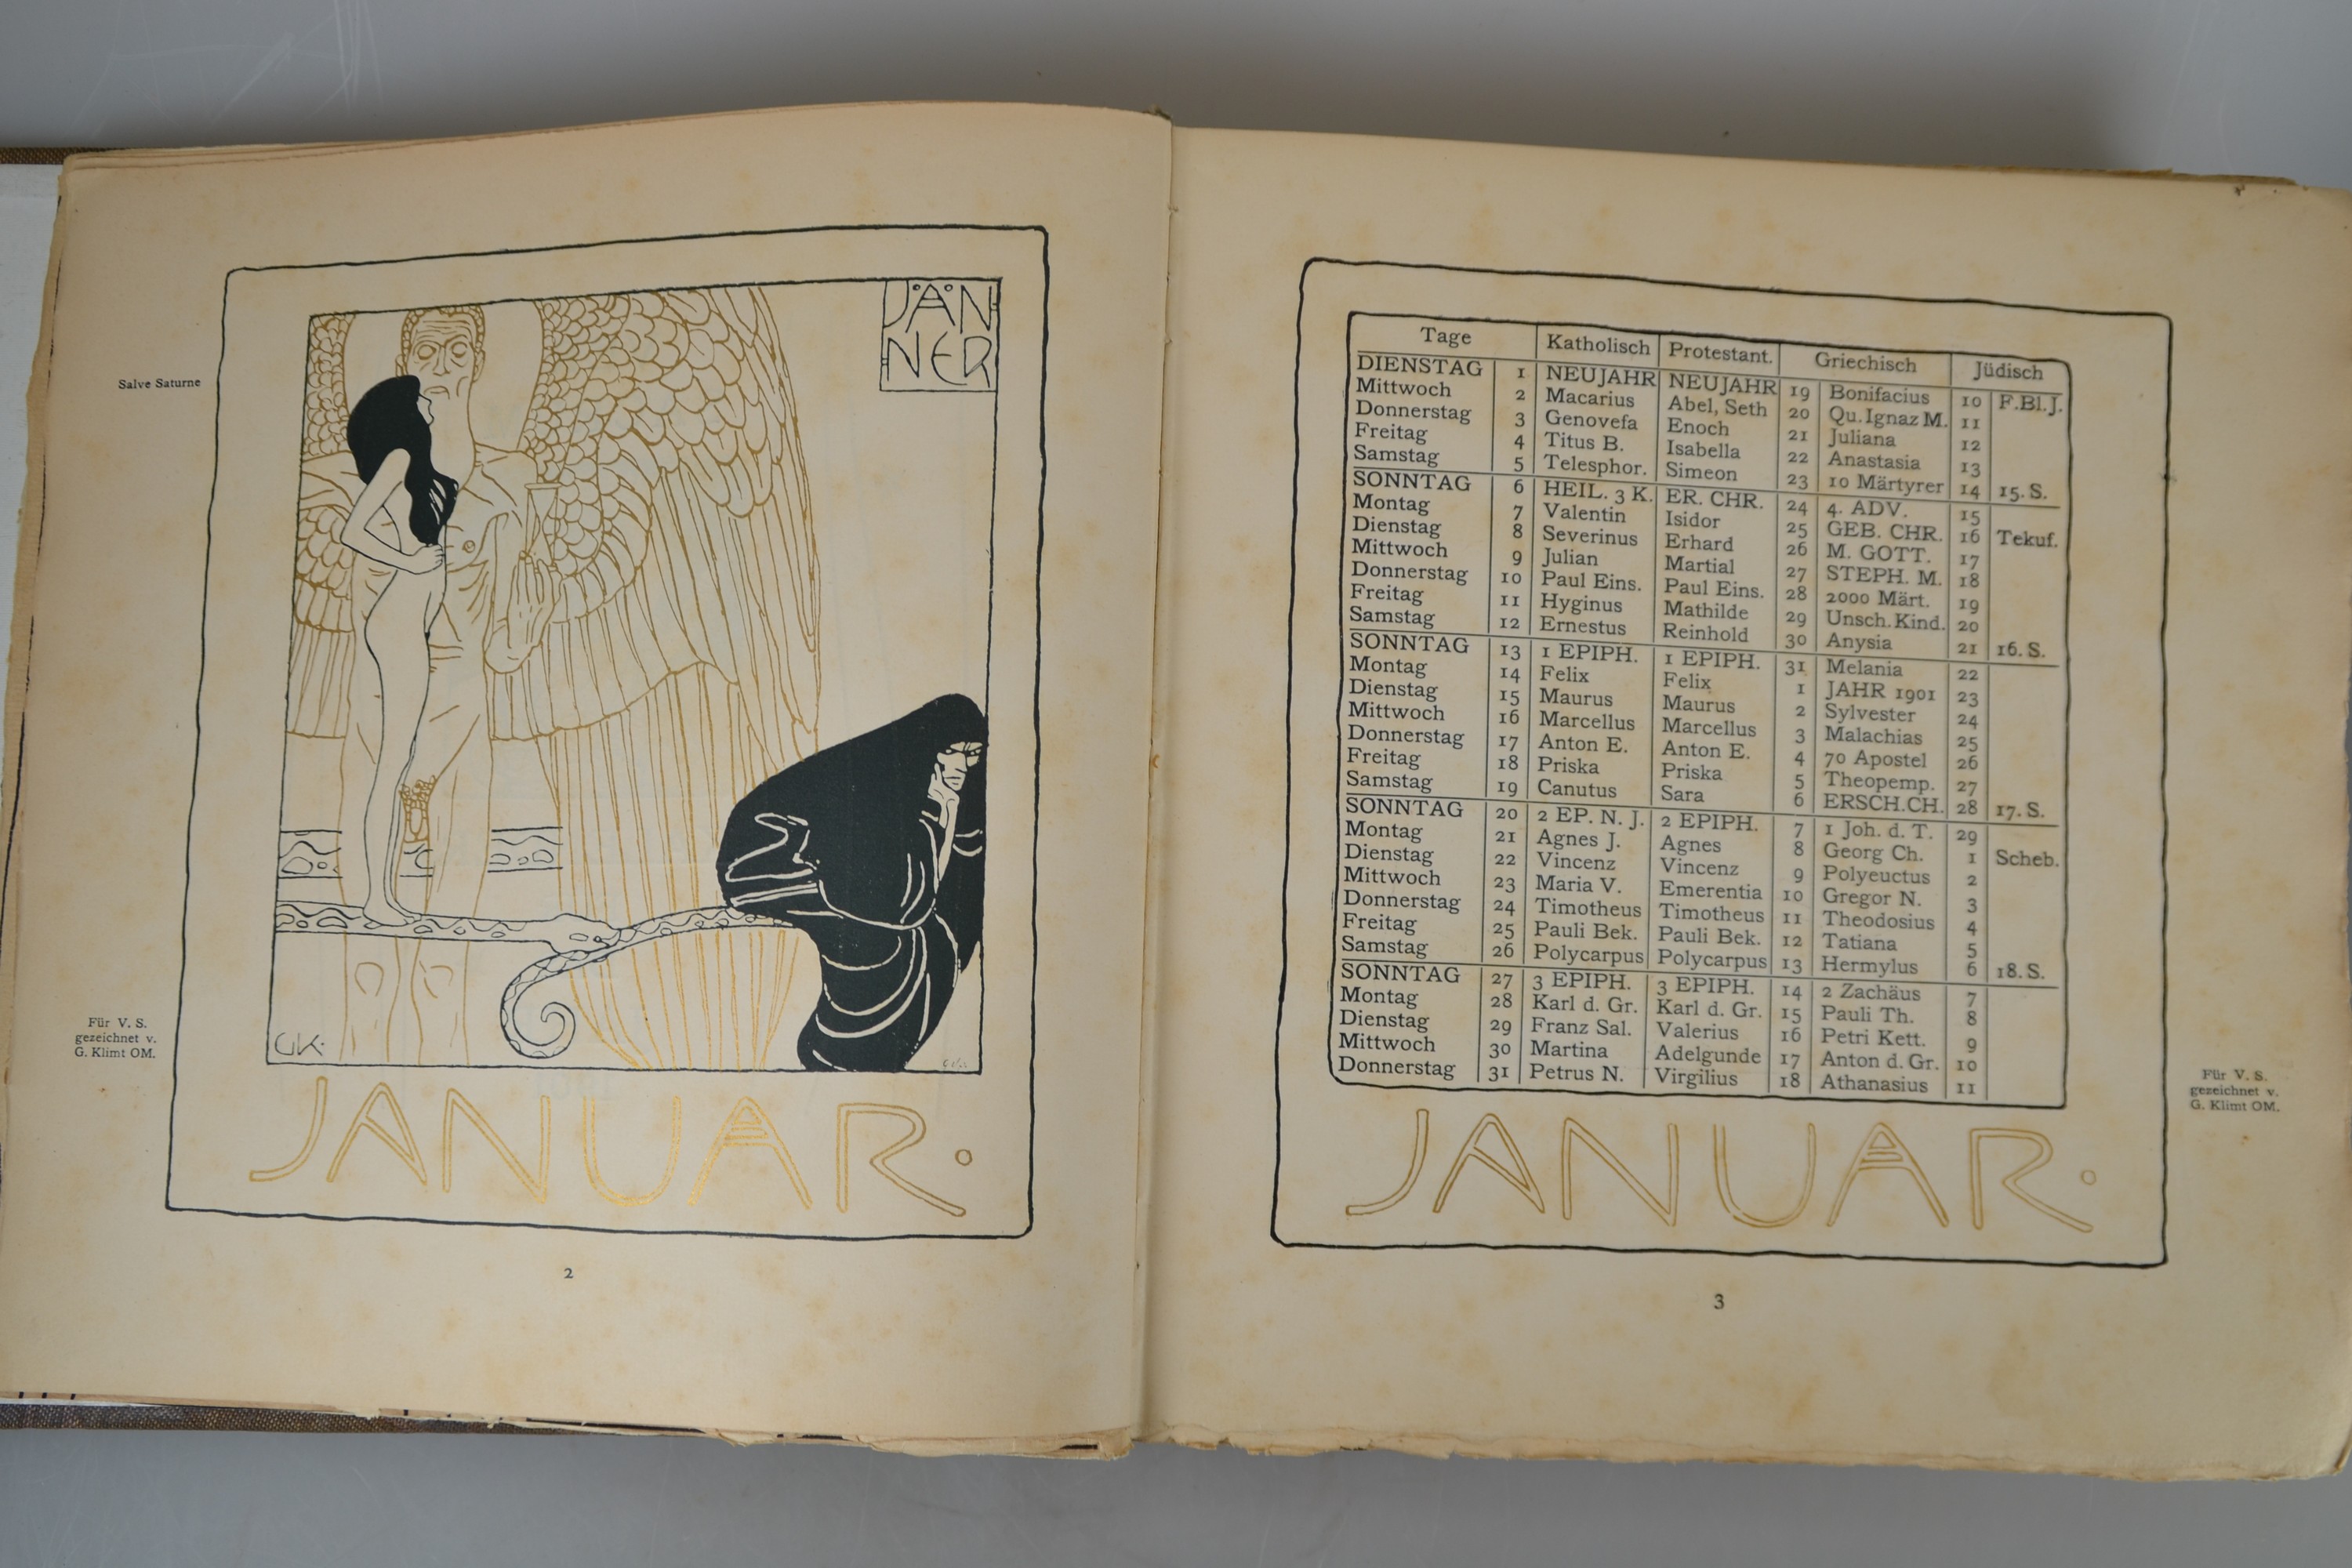 Salve Saturne
JÄN
NER
GK.
Für V. S.
gezeichnet v.
G. Klimt OM.
JANUAR.
2
Tage Katholisch Protestant. Griechisch Jüdisch
DIENSTAG 1 NEUJAHR NEUJAHR 19 Bonifacius 10 F.Bl.J.
Mittwoch 2 Macarius Abel, Seth 20 Qu. Ignaz M. 11
Donnerstag 3 Genovefa Enoch 21 Juliana 12
Freitag 4 Titus B. Isabella 22 Anastasia 13
Samstag 5 Telesphor. Simeon 23 10 Märtyrer 14 15. S.
SONNTAG 6 HEIL. 3 K. ER. CHR. 24 4. ADV. 15
Montag 7 Valentin Isidor 25 GEB. CHR. 16 Tekuf.
Dienstag 8 Severinus Erhard 26 M. GOTT. 17
Mittwoch 9 Julian Martial 27 STEPH. M. 18
Donnerstag 10 Paul Eins. Paul Eins. 28 2000 Märt. 19
Freitag 11 Hyginus Mathilde 29 Unsch. Kind. 20
Samstag 12 Ernestus Reinhold 30 Anysia 21 16. S.
SONNTAG 13 1 EPIPH. 1 EPIPH. 31 Melania 22
Montag 14 Felix Felix 1 JAHR 1901 23
Dienstag 15 Maurus Maurus 2 Sylvester 24
Mittwoch 16 Marcellus Marcellus 3 Malachias 25
Donnerstag 17 Anton E. Anton E. 4 70 Apostel 26
Freitag 18 Priska Priska 5 Theopemp. 27
Samstag 19 Canutus Sara 6 ERSCH.CH. 28 17. S.
SONNTAG 20 2 EP. N. J. 2 EPIPH. 7 1 Joh. d. T. 29
Montag 21 Agnes J. Agnes 8 Georg Ch. 1 Scheb.
Dienstag 22 Vincenz Vincenz 9 Polyeuctus 2
Mittwoch 23 Maria V. Emerentia 10 Gregor N. 3
Donnerstag 24 Timotheus Timotheus 11 Theodosius 4
Freitag 25 Pauli Bek. Pauli Bek. 12 Tatiana 5
Samstag 26 Polycarpus Polycarpus 13 Hermylus 6 18. S.
SONNTAG 27 3 EPIPH. 3 EPIPH. 14 2 Zachäus 7
Montag 28 Karl d. Gr. Karl d. Gr. 15 Pauli Th. 8
Dienstag 29 Franz Sal. Valerius 16 Petri Kett. 9
Mittwoch 30 Martina Adelgunde 17 Anton d. Gr. 10
Donnerstag 31 Petrus N. Virgilius 18 Athanasius 11
Für V. S.
gezeichnet v.
G. Klimt OM.
JANUAR.
3